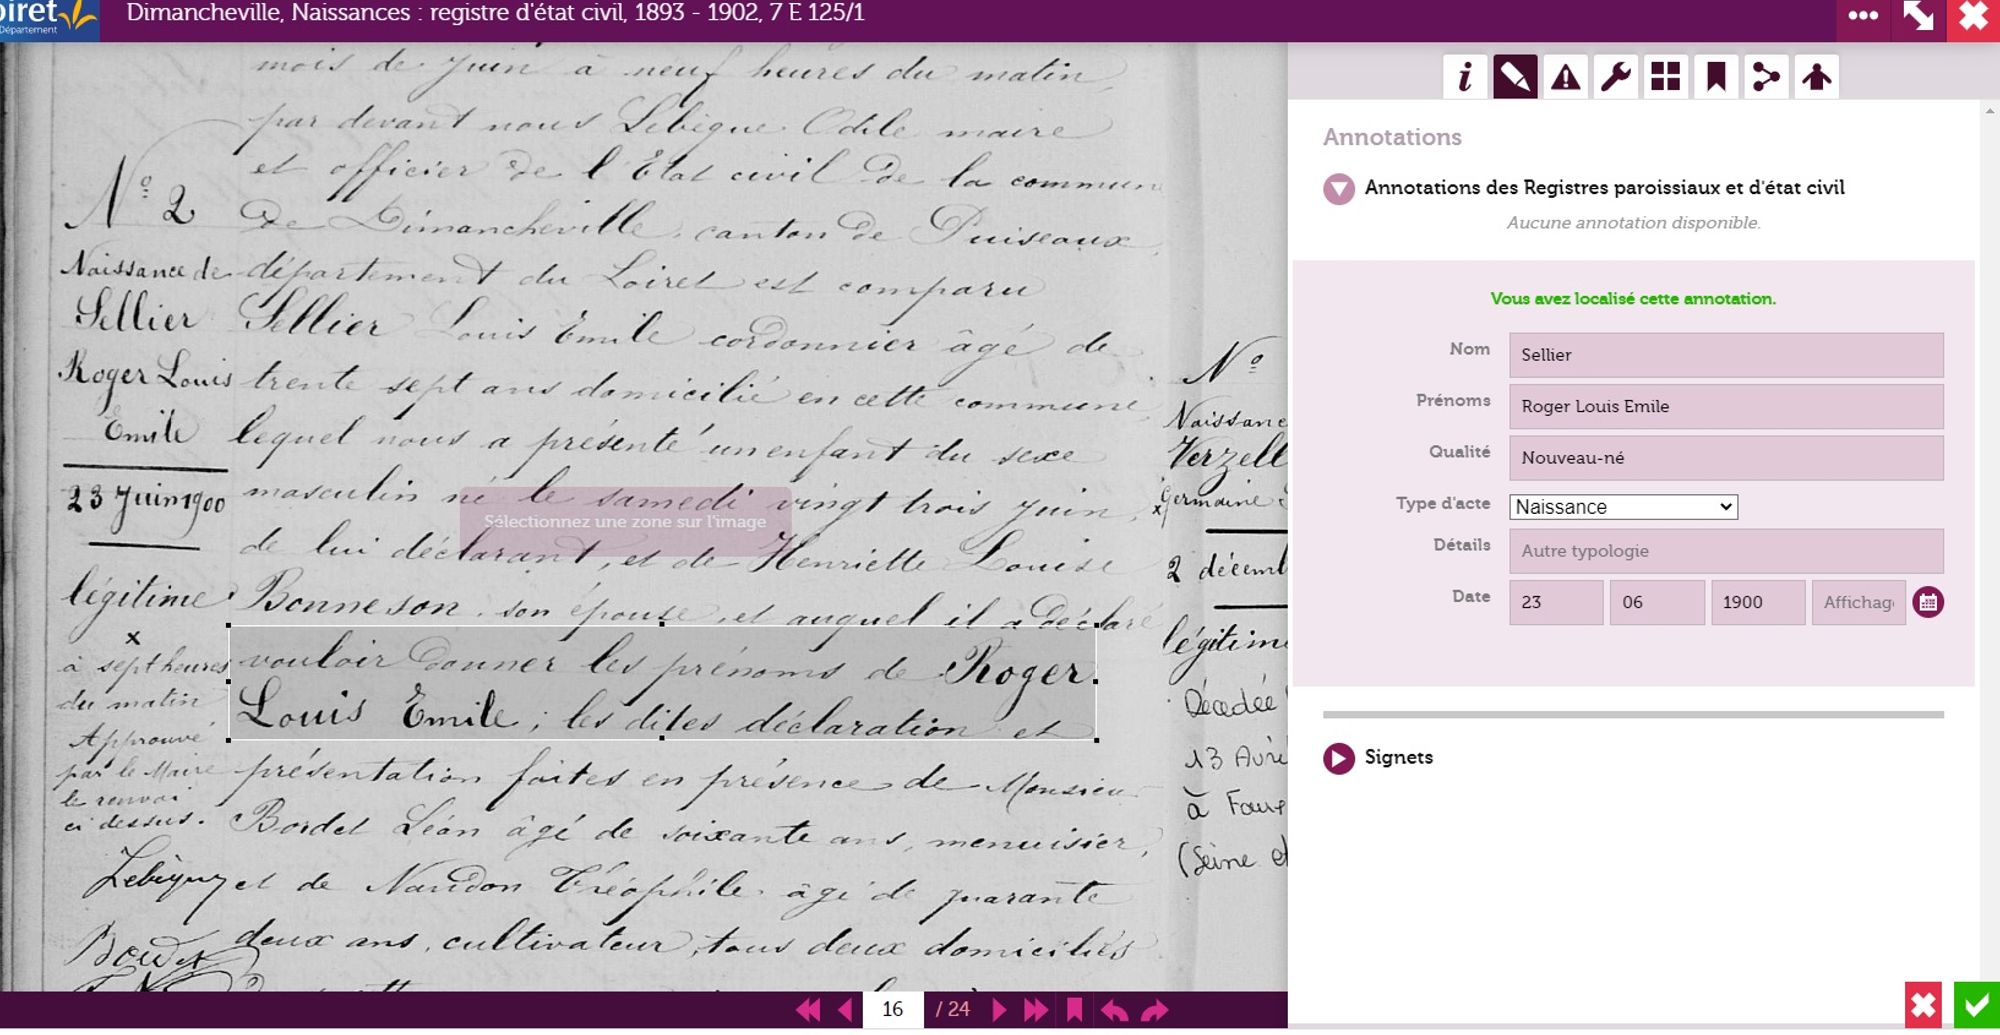 oiret
Département
Dimancheville, Naissances : registre d'état civil, 1893 - 1902, 7 E 125/1
mois de Juin à neuf heures du matin
par devant nous Lebègue Odile maire
et officier de l'Etat civil de la commune
de Dimancheville, canton de Puiseaux
département du Loiret est comparu
Sellier Louis Emile cordonnier âgé de
trente sept ans domicilié en cette commune
lequel nous a présenté un enfant du sexe
masculin né le samedi vingt trois Juin,
Sélectionnez une zone sur l'image
de lui déclarant, et de Henriette Louise
Bonneson son épouse, et auquel il a déclaré
vouloir donner les prénoms de Roger
Louis Emile ; les dites déclaration et
présentation faites en présence de Monsieur
Bordet Léon âgé de soixante ans, menuisier,
et de Naudon Théophile âgé de quarante
deux ans, cultivateur, tous deux domiciliés
N° 2
Naissance de
Sellier
Roger Louis
Emile
23 Juin 1900
légitime
x
à sept heures
du matin
Approuvé
par le Maire
le renvoi
ci dessus.
N°
Naissanc
Verzell
x Germaine
2 décemb
légitim
Décédée
13 Avri
à
(Seine et
Annotations
Annotations des Registres paroissiaux et d'état civil
Aucune annotation disponible.
Vous avez localisé cette annotation.
Nom Sellier
Prénoms Roger Louis Emile
Qualité Nouveau-né
Type d'acte Naissance
Détails Autre typologie
Date 23 06 1900 Affichag
Signets
16 / 24